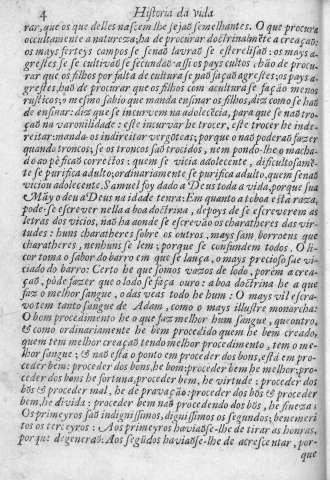 4 Historia da vida
rar, que os que delles nascem lhe sejaõ semelhantes. O que procura
occultamente a natureza, ha de procurar doctrinalmẽte a creaçaõ:
os mays ferteys campos se senaõ lavraõ se esterelisaõ: os mays a-
grestes se se cultivaõ se fecundaõ assi os pays cultos, hão de procu-
rar que os filhos por falta de cultura se naõ façaõ agrestes; os pays a-
grestes, haõ de procurar que os filhos com a cultura se façaõ menos
rusticos; o mesmo sabio que manda ensinar os filhos, diz como se haõ
de ensinar: diz que se incurvem na adolecẽcia, para que se naõ tro-
çaõ na varonilidade: este incurvar he trocer, este trocer he inde-
reitar: manda-os indireitar vergõteas; porque o naõ poderaõ fazer
quando troncos; se os troncos saõ trocidos, nem pondo-lhe o macha-
do ao pè ficaõ correctos: quem se vicia adolecente, difficultosamẽ-
te se purifica adulto; ordinariamente se purifica adulto, quem senaõ
viciou adolecente. Samuel foy dado a Deus toda a vida, porque sua
Mãy o deu a Deus na idade tenra: Em quanto a tcboa està raza,
pode-se escrever nella a boa doctrina, depoys de se escreverem as
letras dos vicios, naõ ha aonde se escrevão os charatheres das vir-
tudes: huns charatheres sobre os outros, mays sam borroens que
charatheres, nenhuns se lem; porque se confundem todos. O li-
cor toma o sabor do barro em que se lança, o mays precioso sae vi-
ciado do barro: Certo he que somos vazos de lodo, porèm a crea-
çaõ, pòde fazer que o lodo se faça ouro: a boa doctrina he a que
faz o melhor sangue, o das veas todo he hum: O mays vil escra-
vo tem tanto sangue de Adam, como o mays illustre monarcha:
O bom procedimento he o que faz melhor hum sangue, que outro,
& como ordinariamente he bem procedido quem he bem creado,
quem tem melhor creaçaõ tendo melhor procedimento, tem o me-
lhor sangue; & naõ està o ponto em proceder dos bons, està em pro-
ceder bem: proceder dos bons, he bom: proceder bem he melhor; pro-
ceder dos bons he fortuna, proceder bem, he virtude: proceder dos
bõs & proceder mal, he de pravaçaõ: proceder dos bõs & proceder
bem, he divida: proceder bem naõ procedendo dos bõs, he fineza:
Os primeyros saõ indignissimos, dignissimos os segundos; benemeri-
tos os terceyros: Aos primeyros haviaõse-lhe de tirar as honras,
por que degeneraõ: Aos segũdos haviaõse-lhe de acrescentar, por-
que